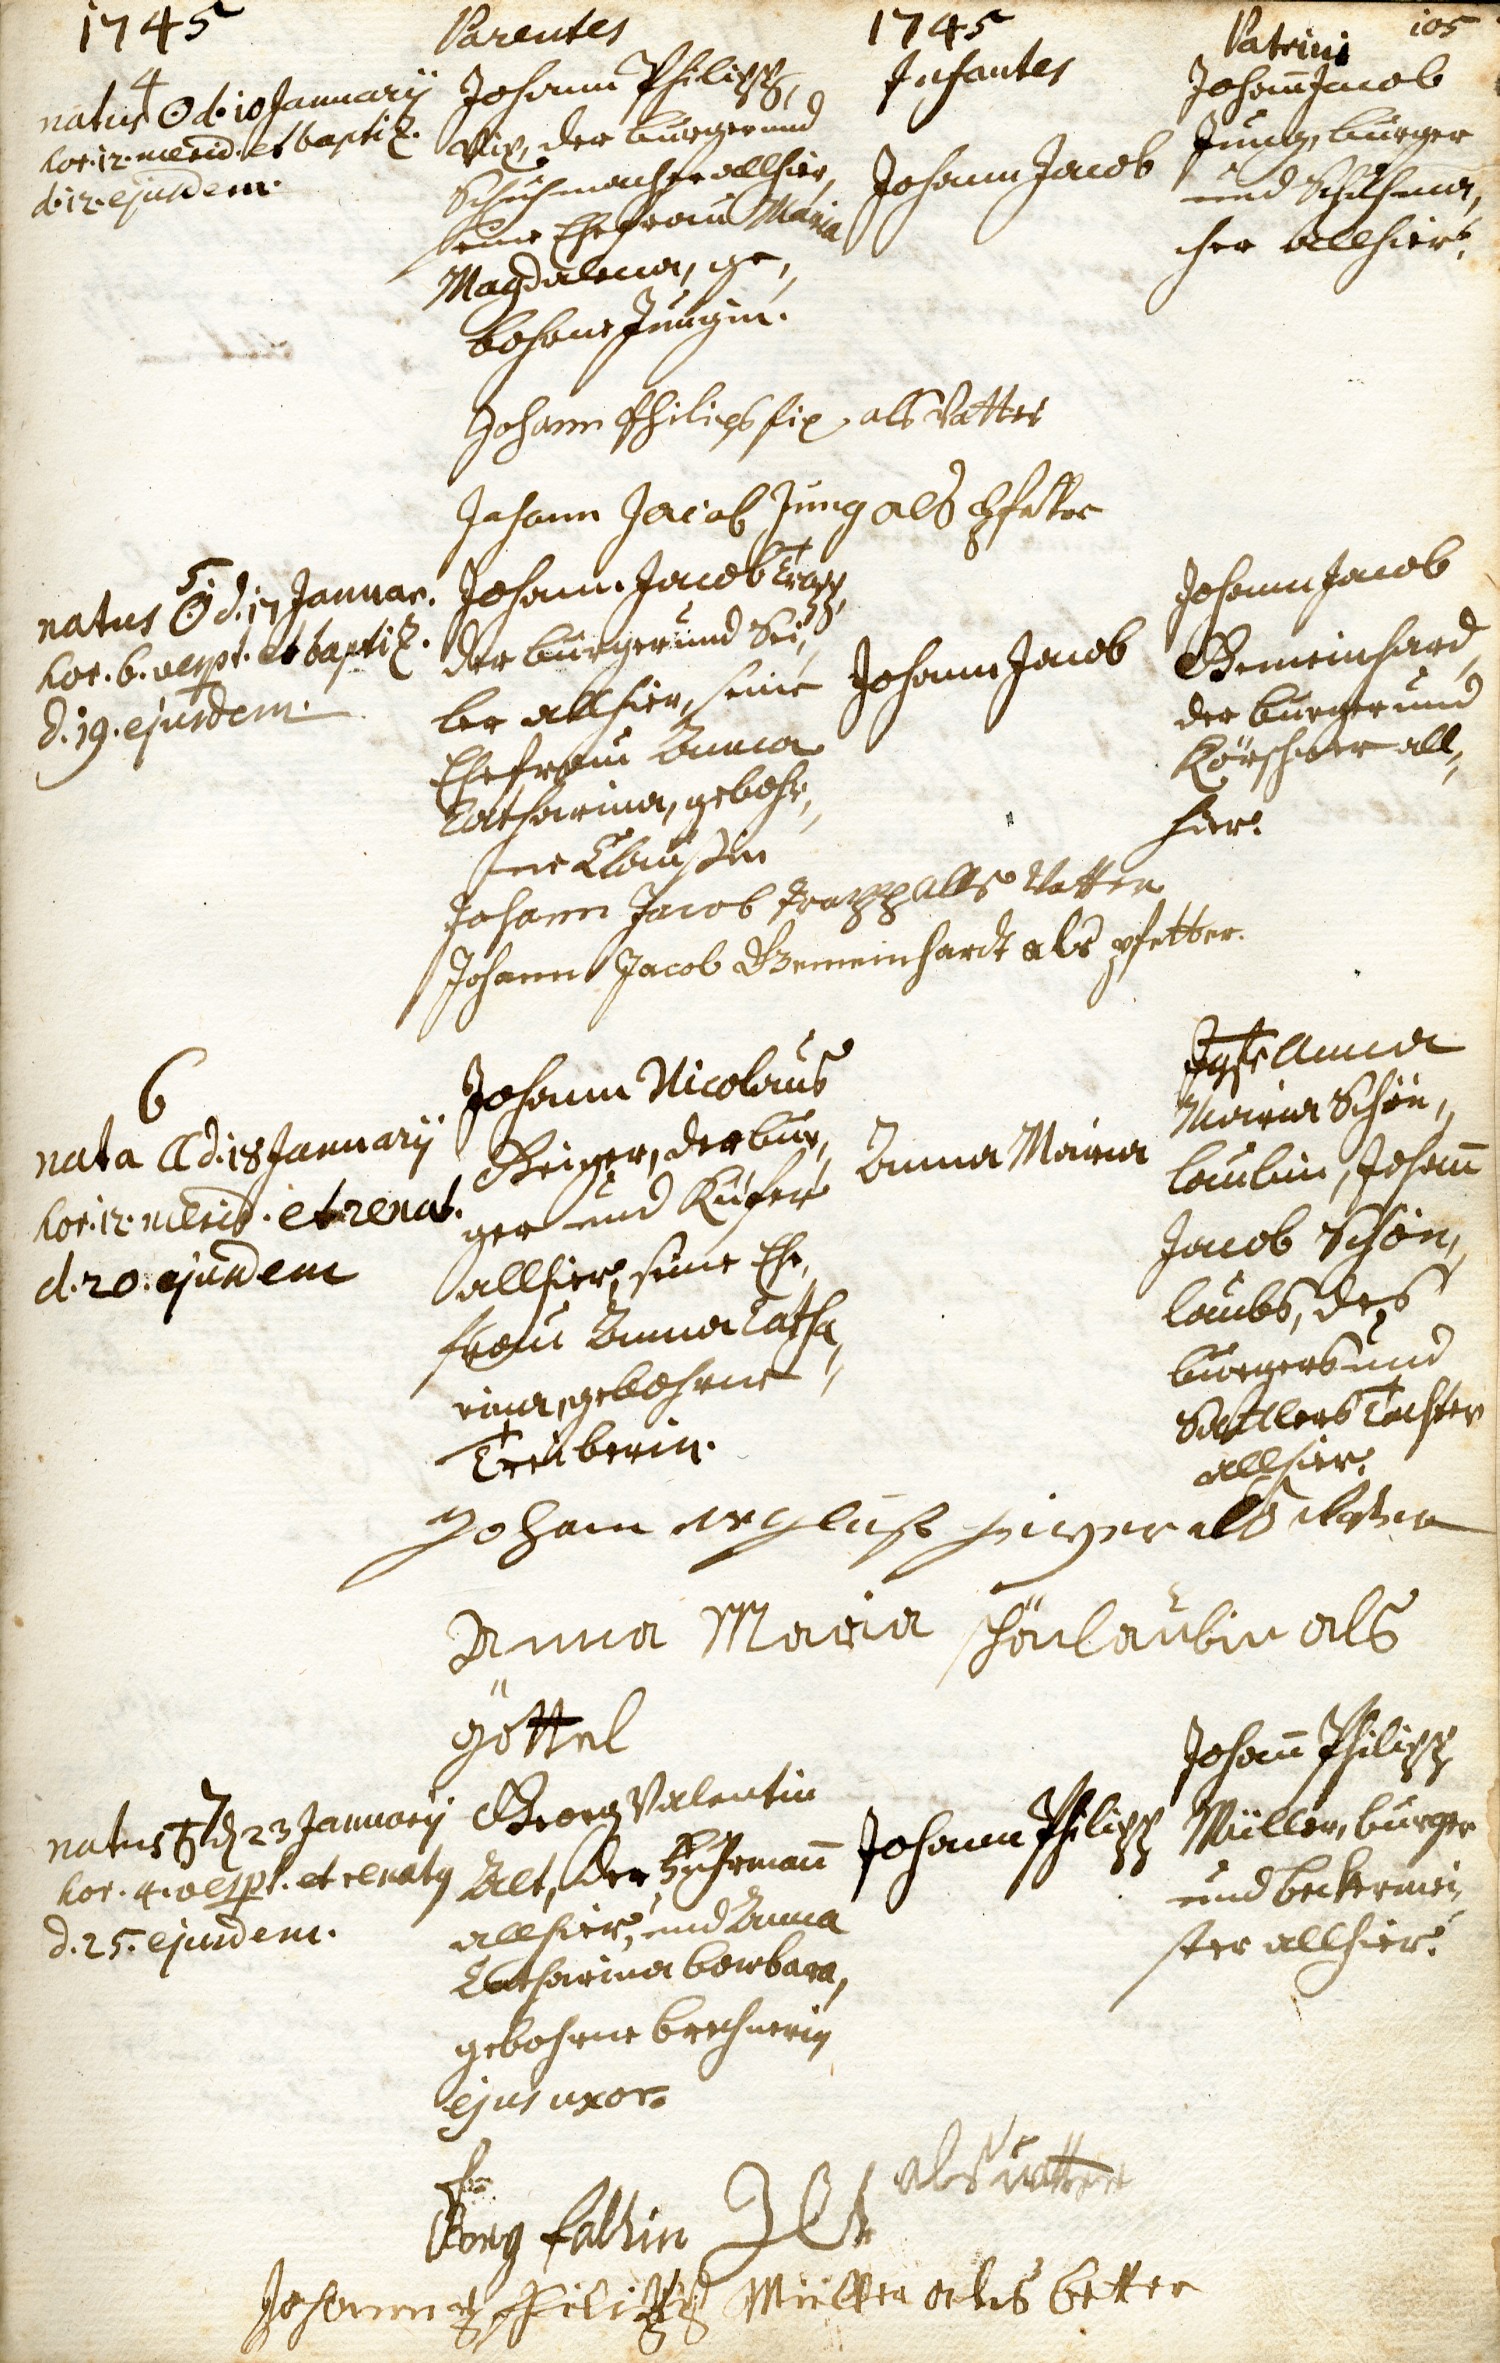 1745
Parentes
1745
Patrini
105
Infantes
4
natus ☉ d. 10 Januarij
hor. 12. merid. et baptiz.
d. 12. ejusdem.
Johann Philipp
Fix, der burger und
Schuhmacher allhier,
seine Ehefrau Maria
Magdalena, ge,,
bohrne Jungin.
Johann Jacob
Johan̅ Jacob
Jung, burger
und Schuhma,,
cher allhier.
Johann Philips fix als Vatter
Johann Jacob Jung als Pfetter
5.
natus ☉ d. 17 Januar.
hor. 6. vespt. et baptiz.
d. 19. ejusdem.
Johann Jacob Trapp,
der burger und
ber allhier, seine
Ehefrau Anna
Catharina, gebohr,,
ne
Johann Jacob
Johann Jacob
Gemeinhard,
der burger und
Kürschner all,,
hier.
Johann Jacob Trapp alls Vatter
Johann Jacob Gemeinhardt als pfetter.
6
nata ☾ d. 18 Januarij
hor. 12. merid. et renat.
d. 20. ejusdem
Johann Nicolaus
Geiger, der bur,,
ger und Küfer
allhier, seine Ehe,,
frau Anna Catha,,
rina, gebohrne
Treiberin.
Anna Maria
Anna
Maria Schön,,
laubin, Johan̅
Jacob Schön,,
laubs, des
burgers und
Sattlers Tochter
allhier.
Johann geiger als
Anna Maria schönlaubin als
göttel
7
natus ♄ d 23 Januarij
hor. 4. vespt. et renatus
d. 25. ejusdem.
Georg Valentin
Alt, der Fuhrman̅
allhier, und Anna
Catharina barbara,
gebohrne brechnerin
ejus uxor.
Johann Philipp
Johan̅ Philipp
Müller, burger
und beckermei,,
ster allhier.
Georg falltin Alt als vatter
Johann Philipp Müller als better